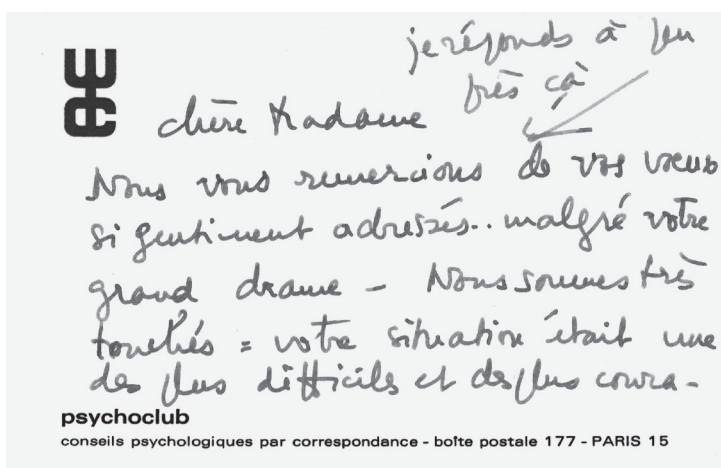 je réponds à peu
près çà
chère Madame
Nous vous remercions de vos vœux
si gentiment adressés.. malgré votre
grand drame - Nous sommes très
touchés = votre situation était une
des plus difficiles et des plus coura-
psychoclub
conseils psychologiques par correspondance - boîte postale 177 - PARIS 15